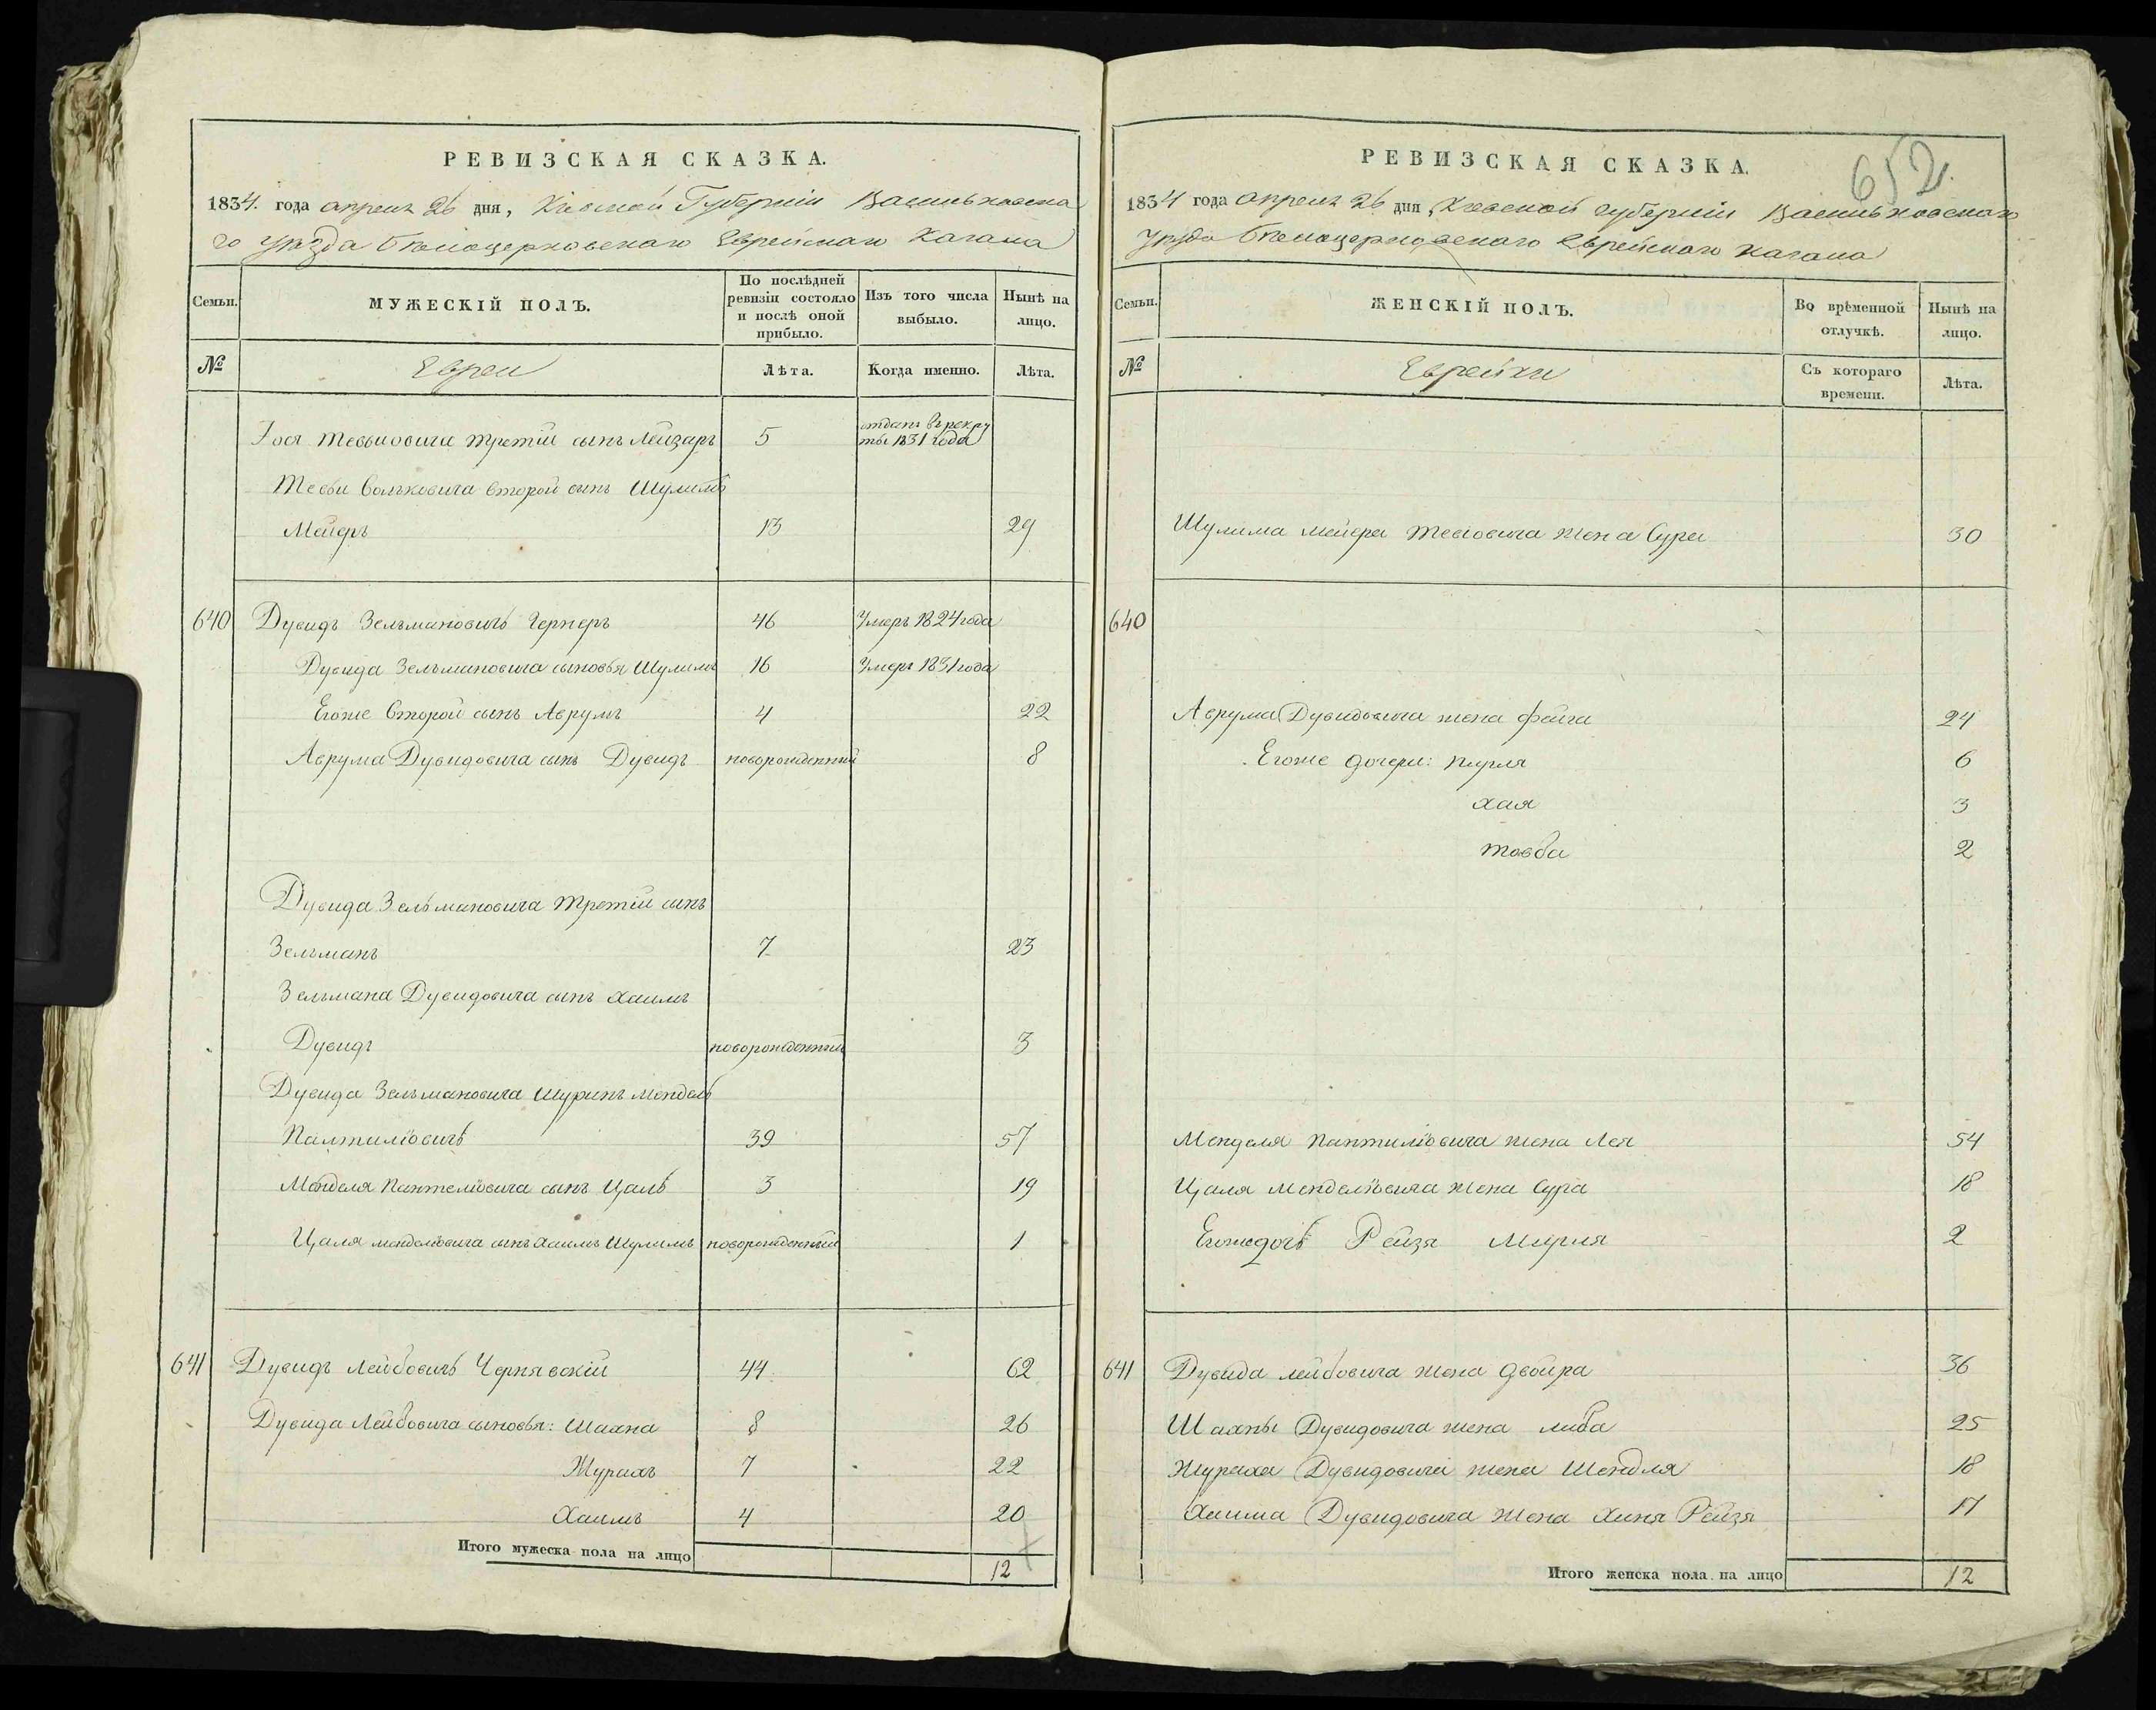 РЕВИЗСКАЯ СКАЗКА.
1834. года апреля 26 дня, Кіевской Губерніи Васильковска
го уѣзда Бѣлоцерковскаго Еврейскаго Кагала
Семьи.
МУЖЕСКІЙ ПОЛЪ.
По послѣдней ревизіи состояло и послѣ оной прибыло.
Изъ того числа выбыло.
Нынѣ на лицо.
№
Евреи
Лѣта.
Когда именно.
Лѣта.
Іося Тевьиовича третій сынъ Лейзаръ 5 отданъ въ рекру
ты 1831 года
Тевьи Вольковича второй сынъ Шулимъ
Мейеръ 13 29
640 Дувидъ Зельмановичъ Чернеръ 46 Умеръ 1824 года
Дувида Зельмановича сыновья Шулимъ 16 Умеръ 1831 года
Егоже второй сынъ Аврумъ 4 22
Аврума Дувидовича сынъ Дувидъ новорожденный 8
Дувида Зельмановича третій сынъ
Зельманъ 7 23
Зельмана Дувидовича сынъ Хаимъ
Дувидъ новорожденный 3
Дувида Зельмановича Шуринъ Мендель
Палтиліовичъ 39 57
Менделя Пантеліовича сынъ Цаль 3 19
Цаля Менделіовича сынъ Хаимъ Шулимъ новорожденный 1
641 Дувидъ Лейбовичъ Чернявскій 44 62
Дувида Лейбовича сыновья: Шахна 8 26
Журахъ 7 22
Хаимъ 4 20
Итого мужеска пола на лицо 12
РЕВИЗСКАЯ СКАЗКА.
652.
1834 года апреля 26 дня, Кіевской губерніи Васильковскаго
уѣзда Бѣлоцерковскаго Еврейскаго Кагала
Семьи.
ЖЕНСКІЙ ПОЛЪ.
Во временной отлучкѣ.
Нынѣ на лицо.
№
Еврейки
Съ котораго времени.
Лѣта.
Шулима Мейера Тевіовича жена Сура 30
640
Аврума Дувидовича жена Фейга 24
Егоже дочери: Перля 6
Хая 3
Товба 2
Менделя Пантиліовича жена Лея 54
Цаля Менделіовича жена Сура 18
Егоже дочь Рейзя Мирля 2
641 Дувида Лейбовича жена Двойра 36
Шахны Дувидовича жена Либа 25
Жураха Дувидовича жена Шендля 18
Хаима Дувидовича жена Хиня Рейзя 17
Итого женска пола на лицо 12